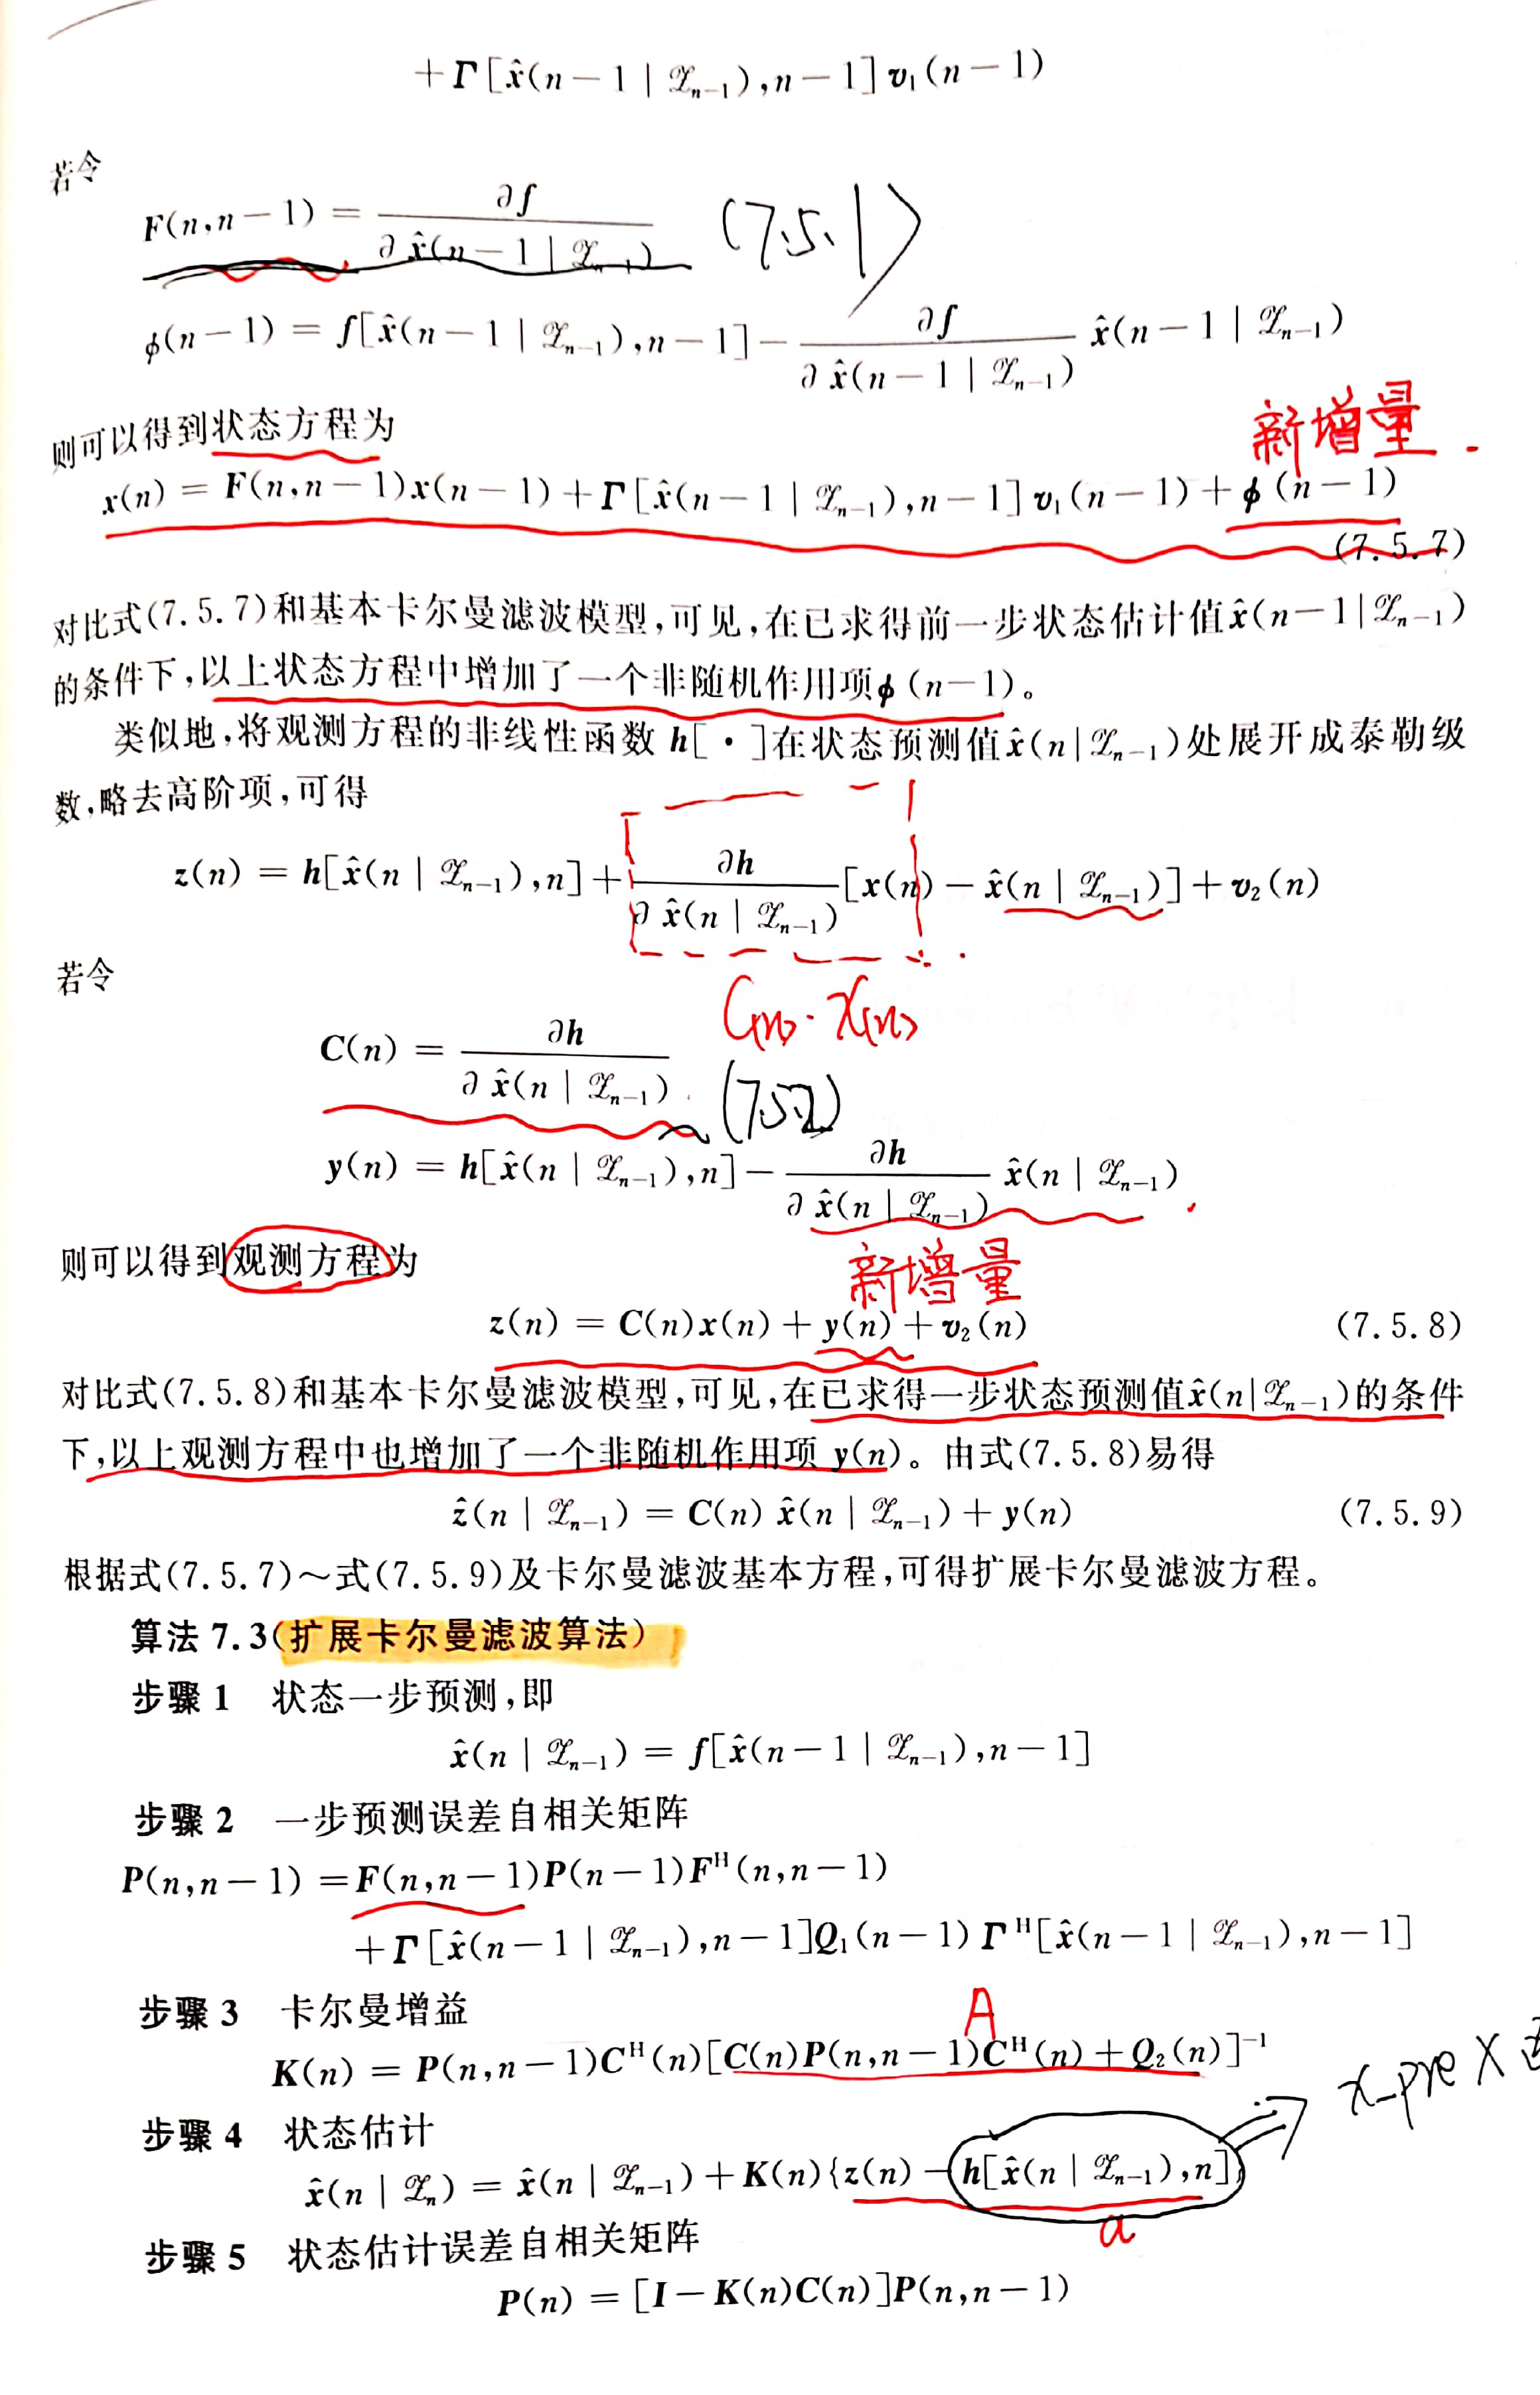 +Γ[x̂(n−1|𝒵ₙ₋₁),n−1]v₁(n−1)
若令
F(n,n−1) = ∂f / ∂x̂(n−1|𝒵ₙ₋₁) (7.5.1)
ϕ(n−1) = f[x̂(n−1|𝒵ₙ₋₁),n−1] − ∂f / ∂x̂(n−1|𝒵ₙ₋₁) x̂(n−1|𝒵ₙ₋₁)
新增量
则可以得到状态方程为
x(n) = F(n,n−1)x(n−1)+Γ[x̂(n−1|𝒵ₙ₋₁),n−1]v₁(n−1)+ϕ(n−1)
(7.5.7)
对比式(7.5.7)和基本卡尔曼滤波模型,可见,在已求得前一步状态估计值x̂(n−1|𝒵ₙ₋₁)
的条件下,以上状态方程中增加了一个非随机作用项ϕ(n−1)。
类似地,将观测方程的非线性函数h[·]在状态预测值x̂(n|𝒵ₙ₋₁)处展开成泰勒级
数,略去高阶项,可得
z(n) = h[x̂(n|𝒵ₙ₋₁),n] + ∂h / ∂x̂(n|𝒵ₙ₋₁) [x(n)−x̂(n|𝒵ₙ₋₁)]+v₂(n)
若令
C(n)·x(n)
C(n) = ∂h / ∂x̂(n|𝒵ₙ₋₁)
(7.5.2)
y(n) = h[x̂(n|𝒵ₙ₋₁),n] − ∂h / ∂x̂(n|𝒵ₙ₋₁) x̂(n|𝒵ₙ₋₁)
则可以得到观测方程为
新增量
z(n) = C(n)x(n)+y(n)+v₂(n) (7.5.8)
对比式(7.5.8)和基本卡尔曼滤波模型,可见,在已求得一步状态预测值x̂(n|𝒵ₙ₋₁)的条件
下,以上观测方程中也增加了一个非随机作用项 y(n)。由式(7.5.8)易得
ẑ(n|𝒵ₙ₋₁) = C(n)x̂(n|𝒵ₙ₋₁)+y(n) (7.5.9)
根据式(7.5.7)～式(7.5.9)及卡尔曼滤波基本方程,可得扩展卡尔曼滤波方程。
算法 7.3(扩展卡尔曼滤波算法)
步骤 1 状态一步预测,即
x̂(n|𝒵ₙ₋₁) = f[x̂(n−1|𝒵ₙ₋₁),n−1]
步骤 2 一步预测误差自相关矩阵
P(n,n−1) =F(n,n−1)P(n−1)Fᴴ(n,n−1)
+Γ[x̂(n−1|𝒵ₙ₋₁),n−1]Q₁(n−1)Γᴴ[x̂(n−1|𝒵ₙ₋₁),n−1]
步骤 3 卡尔曼增益
A
K(n) = P(n,n−1)Cᴴ(n)[C(n)P(n,n−1)Cᴴ(n)+Q₂(n)]⁻¹
x_pre X
步骤 4 状态估计
x̂(n|𝒵ₙ) = x̂(n|𝒵ₙ₋₁)+K(n){z(n)−h[x̂(n|𝒵ₙ₋₁),n]}
a
步骤 5 状态估计误差自相关矩阵
P(n) = [I−K(n)C(n)]P(n,n−1)